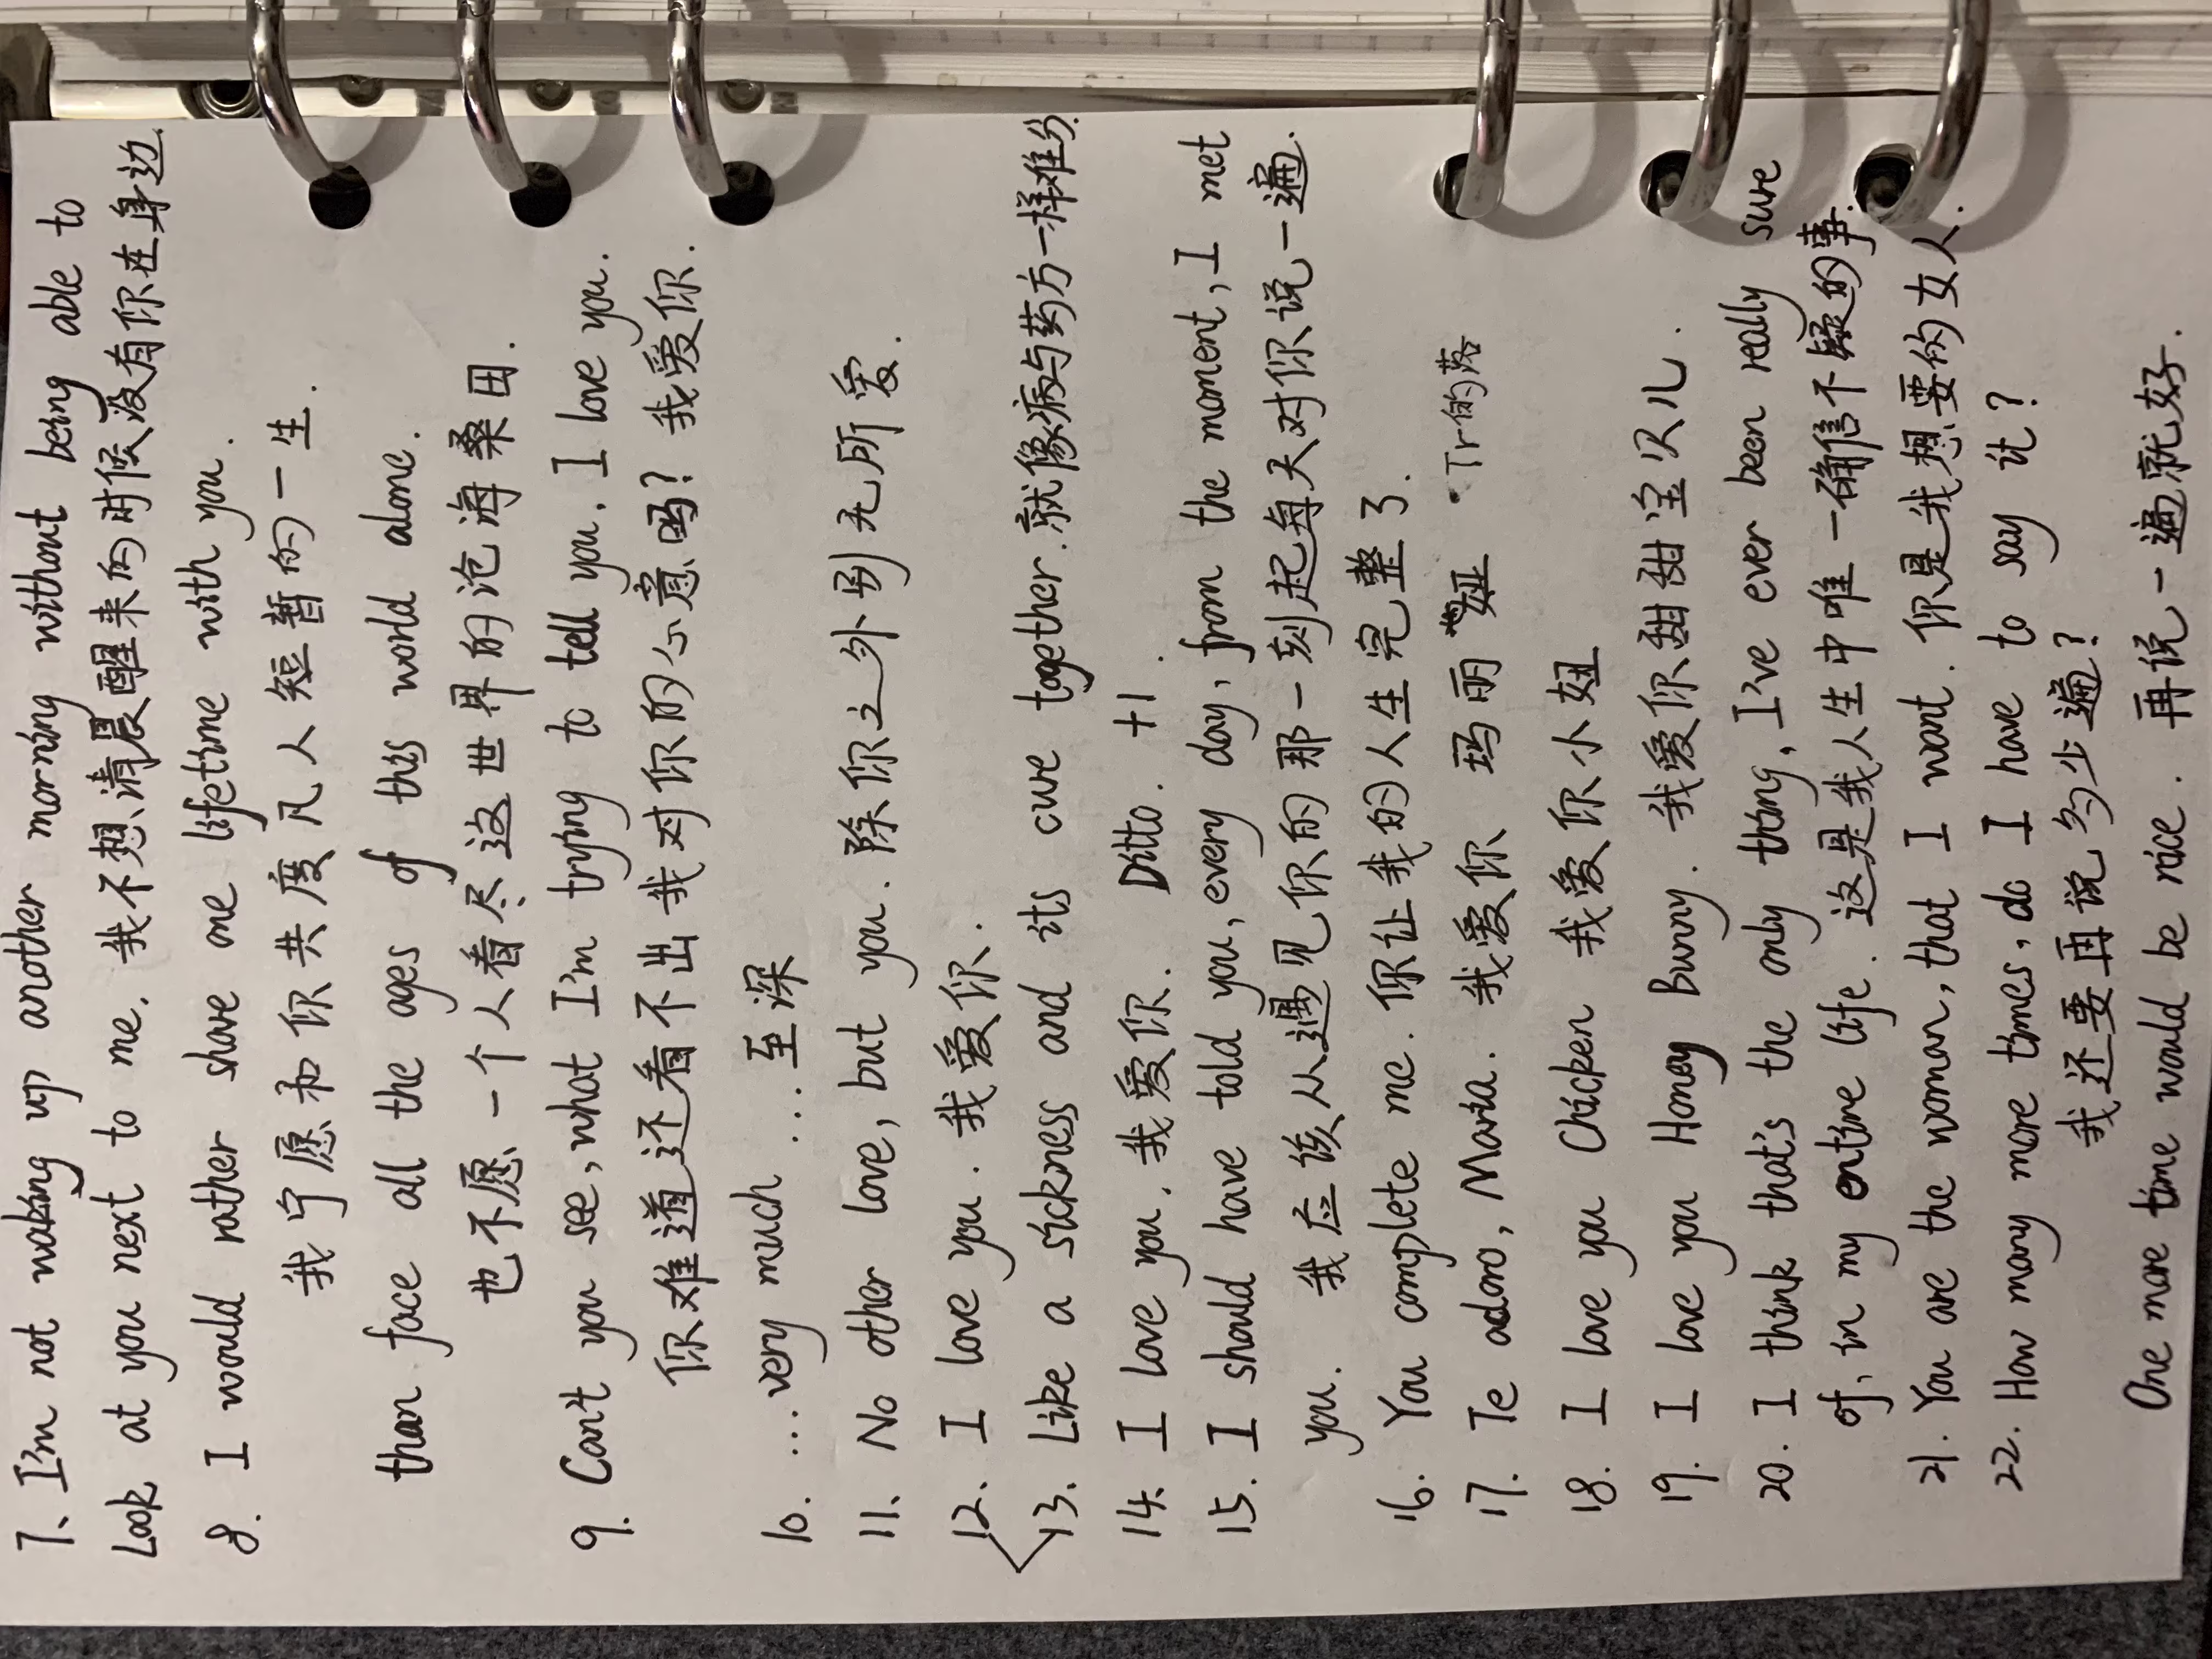 7、I'm not waking up another morning without being able to
Look at you next to me. 我不想清晨醒来的时候没有你在身边
8. I would rather share one lifetime with you.
我宁愿和你共度凡人短暂的一生.
than face all the ages of this world alone.
也不愿一个人看尽这世界的沧海桑田.
9. Can't you see, what I'm trying to tell you, I love you.
你难道还看不出我对你的心意吗? 我爱你.
10. ...very much ...至深
11、No other love, but you. 除你之外别无所爱.
12、I love you. 我爱你.
13. Like a sickness and its cure together. 就像病与药方一样难分.
14. I love you, 我爱你. Ditto. +1.
15. I should have told you, every day, from the moment, I met
you. 我应该从遇见你的那一刻起每天对你说一遍.
16. You complete me. 你让我的人生完整了.
17. Te adoro, Maria. 我爱你 玛丽娅 Tr的落
18. I love you Chicken 我爱你小妞
19. I love you Honey Bunny. 我爱你甜甜宝贝儿.
20. I think that's the only thing, I've ever been really sure
of, in my entire life. 这是我人生中唯一确信不疑的事.
21. You are the woman, that I want. 你是我想要的女人.
22. How many more times, do I have to say it?
我还要再说多少遍?
One more time would be nice. 再说一遍就好.